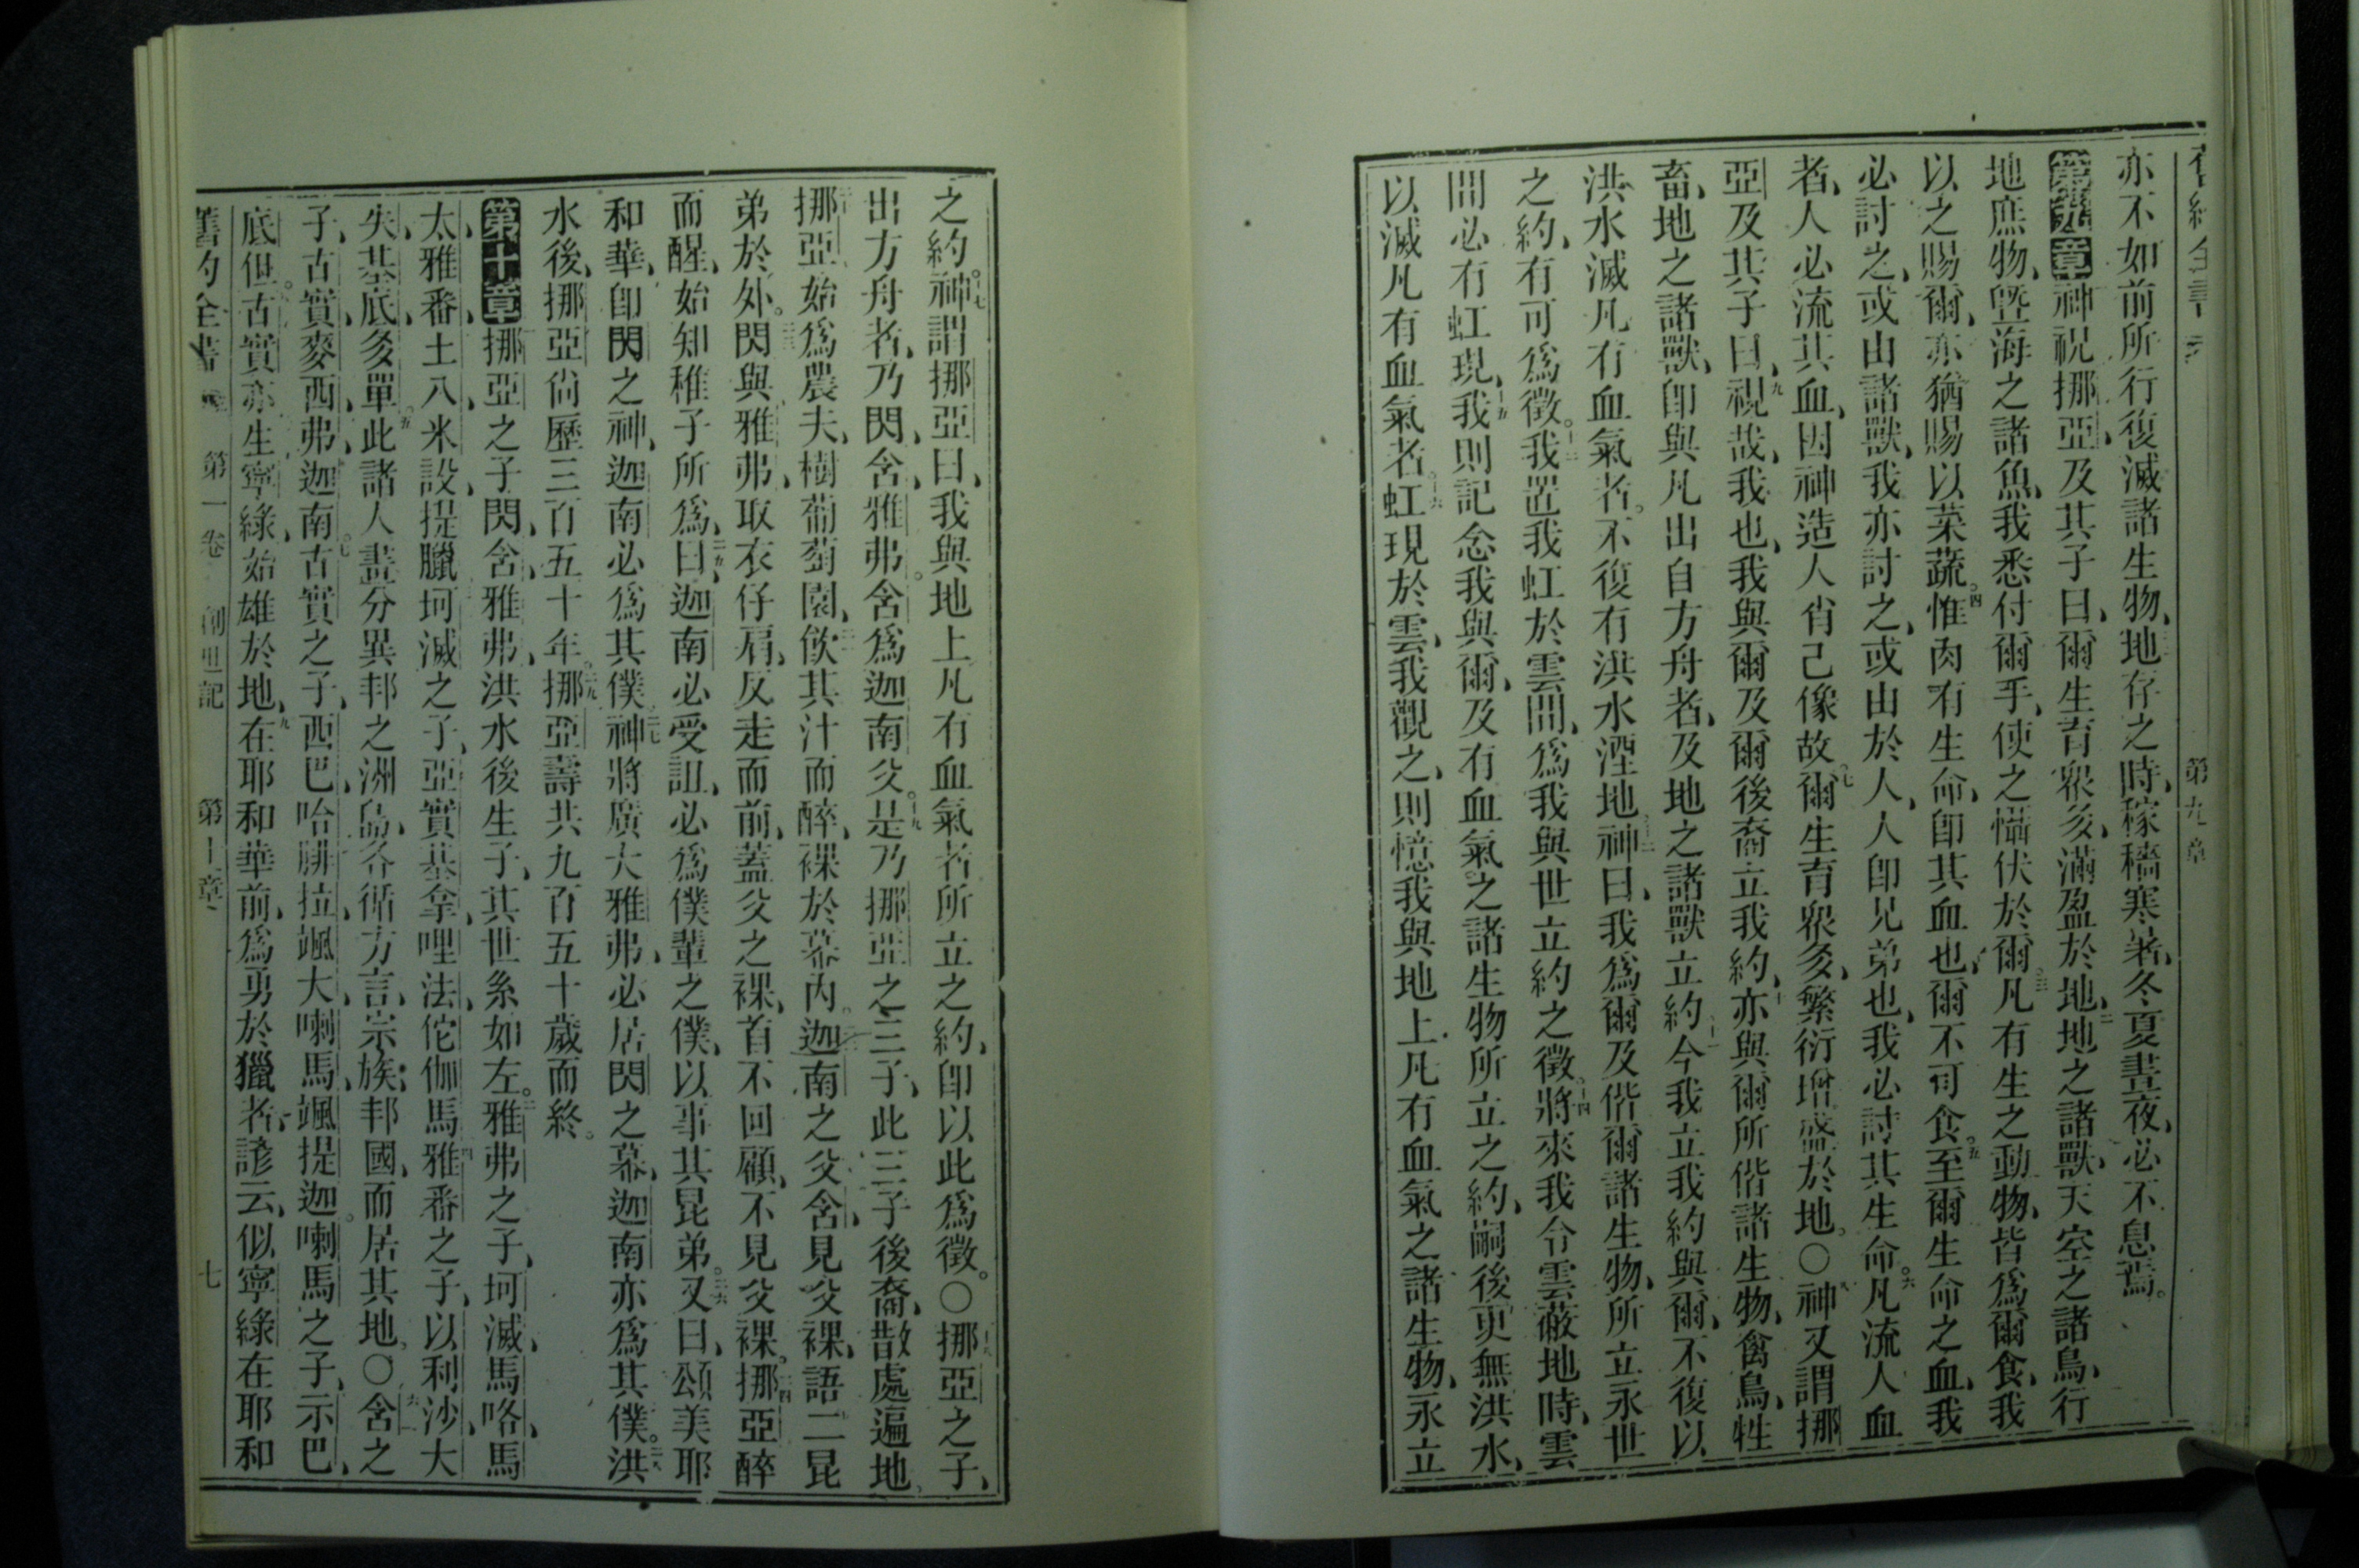 第九章
亦不如前所行、復滅諸生物、地存之時、稼穡寒暑、冬夏晝夜、必不息焉。
第九章神祝挪亞、及其子曰、爾生育眾多、滿盈於地、二地之諸獸、天空之諸鳥、行
地庶物、曁海之諸魚、我悉付爾手、使之懾伏於爾、三凡有生之動物、皆爲爾食、我
以之賜爾、亦猶賜以菜蔬。四惟肉有生命、卽其血也、爾不可食。五至爾生命之血、我
必討之、或由諸獸、我亦討之、或由於人、人卽兄弟也、我必討其生命。六凡流人血
者、人必流其血、因神造人肖己像故。七爾生育眾多、繁衍增盛於地。〇八神又謂挪
亞及其子曰、九視哉、我也、我與爾及爾後裔立我約、十亦與爾所偕諸生物、禽鳥、牲
畜、地之諸獸、卽與凡出自方舟者、及地之諸獸立約。十一今我立我約與爾、不復以
洪水滅凡有血氣者。不復有洪水湮地。十二神曰、我爲爾及偕爾諸生物、所立永世
之約、有可爲徵。十三我置我虹於雲間、爲我與世立約之徵。十四將來我令雲蔽地時、雲
間必有虹現、十五我則記念我與爾、及有血氣之諸生物所立之約、嗣後更無洪水、
以滅凡有血氣者。十六虹現於雲、我觀之、則憶我與地上凡有血氣之諸生物、永立
之約。十七神謂挪亞曰、我與地上凡有血氣者所立之約、卽以此爲徵。〇十八挪亞之子、
出方舟者、乃閃、含、雅弗。含爲迦南父。十九是乃挪亞之三子、此三子後裔、散處遍地。
二十挪亞始爲農夫、樹葡萄園、二一飮其汁而醉、裸於幕內。二二迦南之父含、見父裸、語二昆
弟於外。二三閃與雅弗、取衣仔肩、反走而前、蓋父之裸、首不回顧、不見父裸。二四挪亞醉
而醒、始知稚子所爲、二五曰、迦南必受詛、必爲僕輩之僕、以事其昆弟。二六又曰、頌美耶
和華、卽閃之神、迦南必爲其僕、二七神將廣大雅弗、必居閃之幕、迦南亦爲其僕。二八洪
水後、挪亞尙歷三百五十年。二九挪亞壽共九百五十歲而終。
第十章挪亞之子閃、含、雅弗、洪水後生子、其世系如左。二雅弗之子、坷滅、馬咯、馬
太、雅番、土八、米設、提臘、三坷滅之子、亞實基拿、哩法、佗伽馬、四雅番之子、以利沙、大
失、基底、多單、五此諸人盡分異邦之洲島、各循方言、宗族、邦國、而居其地。〇六含之
子、古實、麥西、弗、迦南。七古實之子、西巴、哈腓拉、颯大、喇馬、颯提迦。喇馬之子、示巴、
底但。八古實亦生寧綠、始雄於地、九在耶和華前、爲勇於獵者、諺云、似寧綠在耶和
舊約全書 第一卷 創世記 第十章 七